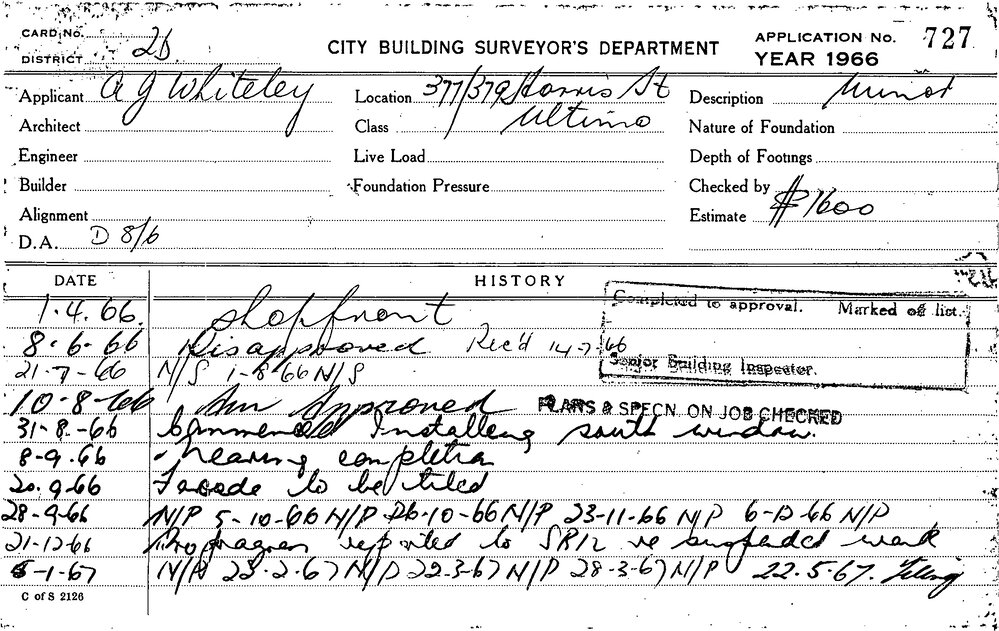 CARD No.
DISTRICT 2D
CITY BUILDING SURVEYOR'S DEPARTMENT
APPLICATION No. 727
YEAR 1966
Applicant A G Whiteley
Location 377/379 Harris St
Description Minor
Architect
Class Ultimo
Nature of Foundation
Engineer
Live Load
Depth of Footings
Builder
Foundation Pressure
Checked by
Alignment
Estimate $1600
D.A. D 8/6
DATE HISTORY
1.4.66. Shopfront
Completed to approval. Marked off list.
Senior Building Inspector.
8.6.66 Disapproved Rec'd 14-7-66
21-7-66 N/S 1-8-66 N/S
10-8-66 Approved PLANS & SPECN ON JOB CHECKED
31-8-66 Commenced Installing south window.
8-9.66 nearing completion
20.9.66 Facade to be tiled
28-9-66 N/P 5-10-66 N/P 26-10-66 N/P 23-11-66 N/P 6-12-66 N/P
21-12-66 No progress reported to re suspended work
5-1-67 N/P 23-2-67 N/P 22-3-67 N/P 28-3-67 N/P 22.5.67.
C of S 2126